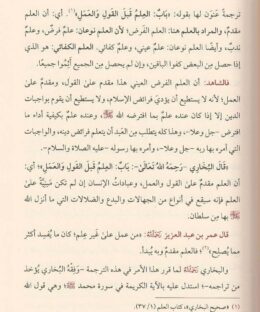 ترجمةً عَنْوَن لها بقوله: «بَابُ: العِلمُ قَبلَ القَولِ وَالعَمَلِ»(١). أي: أن العلم
مقدمٌ، والمراد بالعلم هنا: العلم الفَرض؛ لأن العلم نوعان: علمُ فرضٍ، وعلمُ
ندبٍ، وأيضًا العلم نوعان: علمٌ عيني، وعلمٌ كفائي. هو: العلم الكفائي هو الذي إذا
حصل مِن البعض كفوا الباقين، وإن لم يحصل مِن الجميع أثموا جميعًا.
فالشاهد: أن العلم الفرض العيني هذا مقدمٌ علىٰ القول، ومقدمٌ علىٰ
العمل؛ لأنه لا يستطيع أن يؤدي فرائض الإسلام، ولا يستطيع أن يقوم بواجبات
الدين إلا إذا كان عنده علمٌ بما افترضه الله ﷺ، وعنده علمٌ بكيفية أداء ما
افترض -جل وعلا-، وهذا كله يتطلب مِن العبد أن يتعلم فرائض دينه، والواجبات
التي أمره بها ربه -جل وعلا-، والأصول التي أمره بها.
«قَالَ البُخَارِي -رَحِمَهُ اللهُ تَعَالَىٰ-: بَابُ: العِلمُ قَبلَ القَولِ وَالعَمَلِ» أي:
أن العلم مقدمٌ علىٰ القول والعمل، وعبادات الإنسان إن لم تكن مَبنيَّةً علىٰ
العلم فإنه سيقع في أنواعٍ من الجهالات والبدع والضلالات التي ما أنزل الله
بها مِن سلطان.
قال عمر بن عبد العزيز: «من عمل علىٰ غيرِ عِلمٍ؛ كان ما يُفسد أكثر
مما يُصلح»(٢)، فالعلم مقدمٌ وبه يُبدأ.
والبخاري لما قرر هذا الأمر في هذه الترجمة -وفِقْهُ البخاريِّ يُؤخذ
من تراجمه- استدل عليه بالآية الكريمة في سورة محمد ﷺ؛ وهي قول الله
(١) «صحيح البخاري»، كتاب العلم (١/ ٣٧).